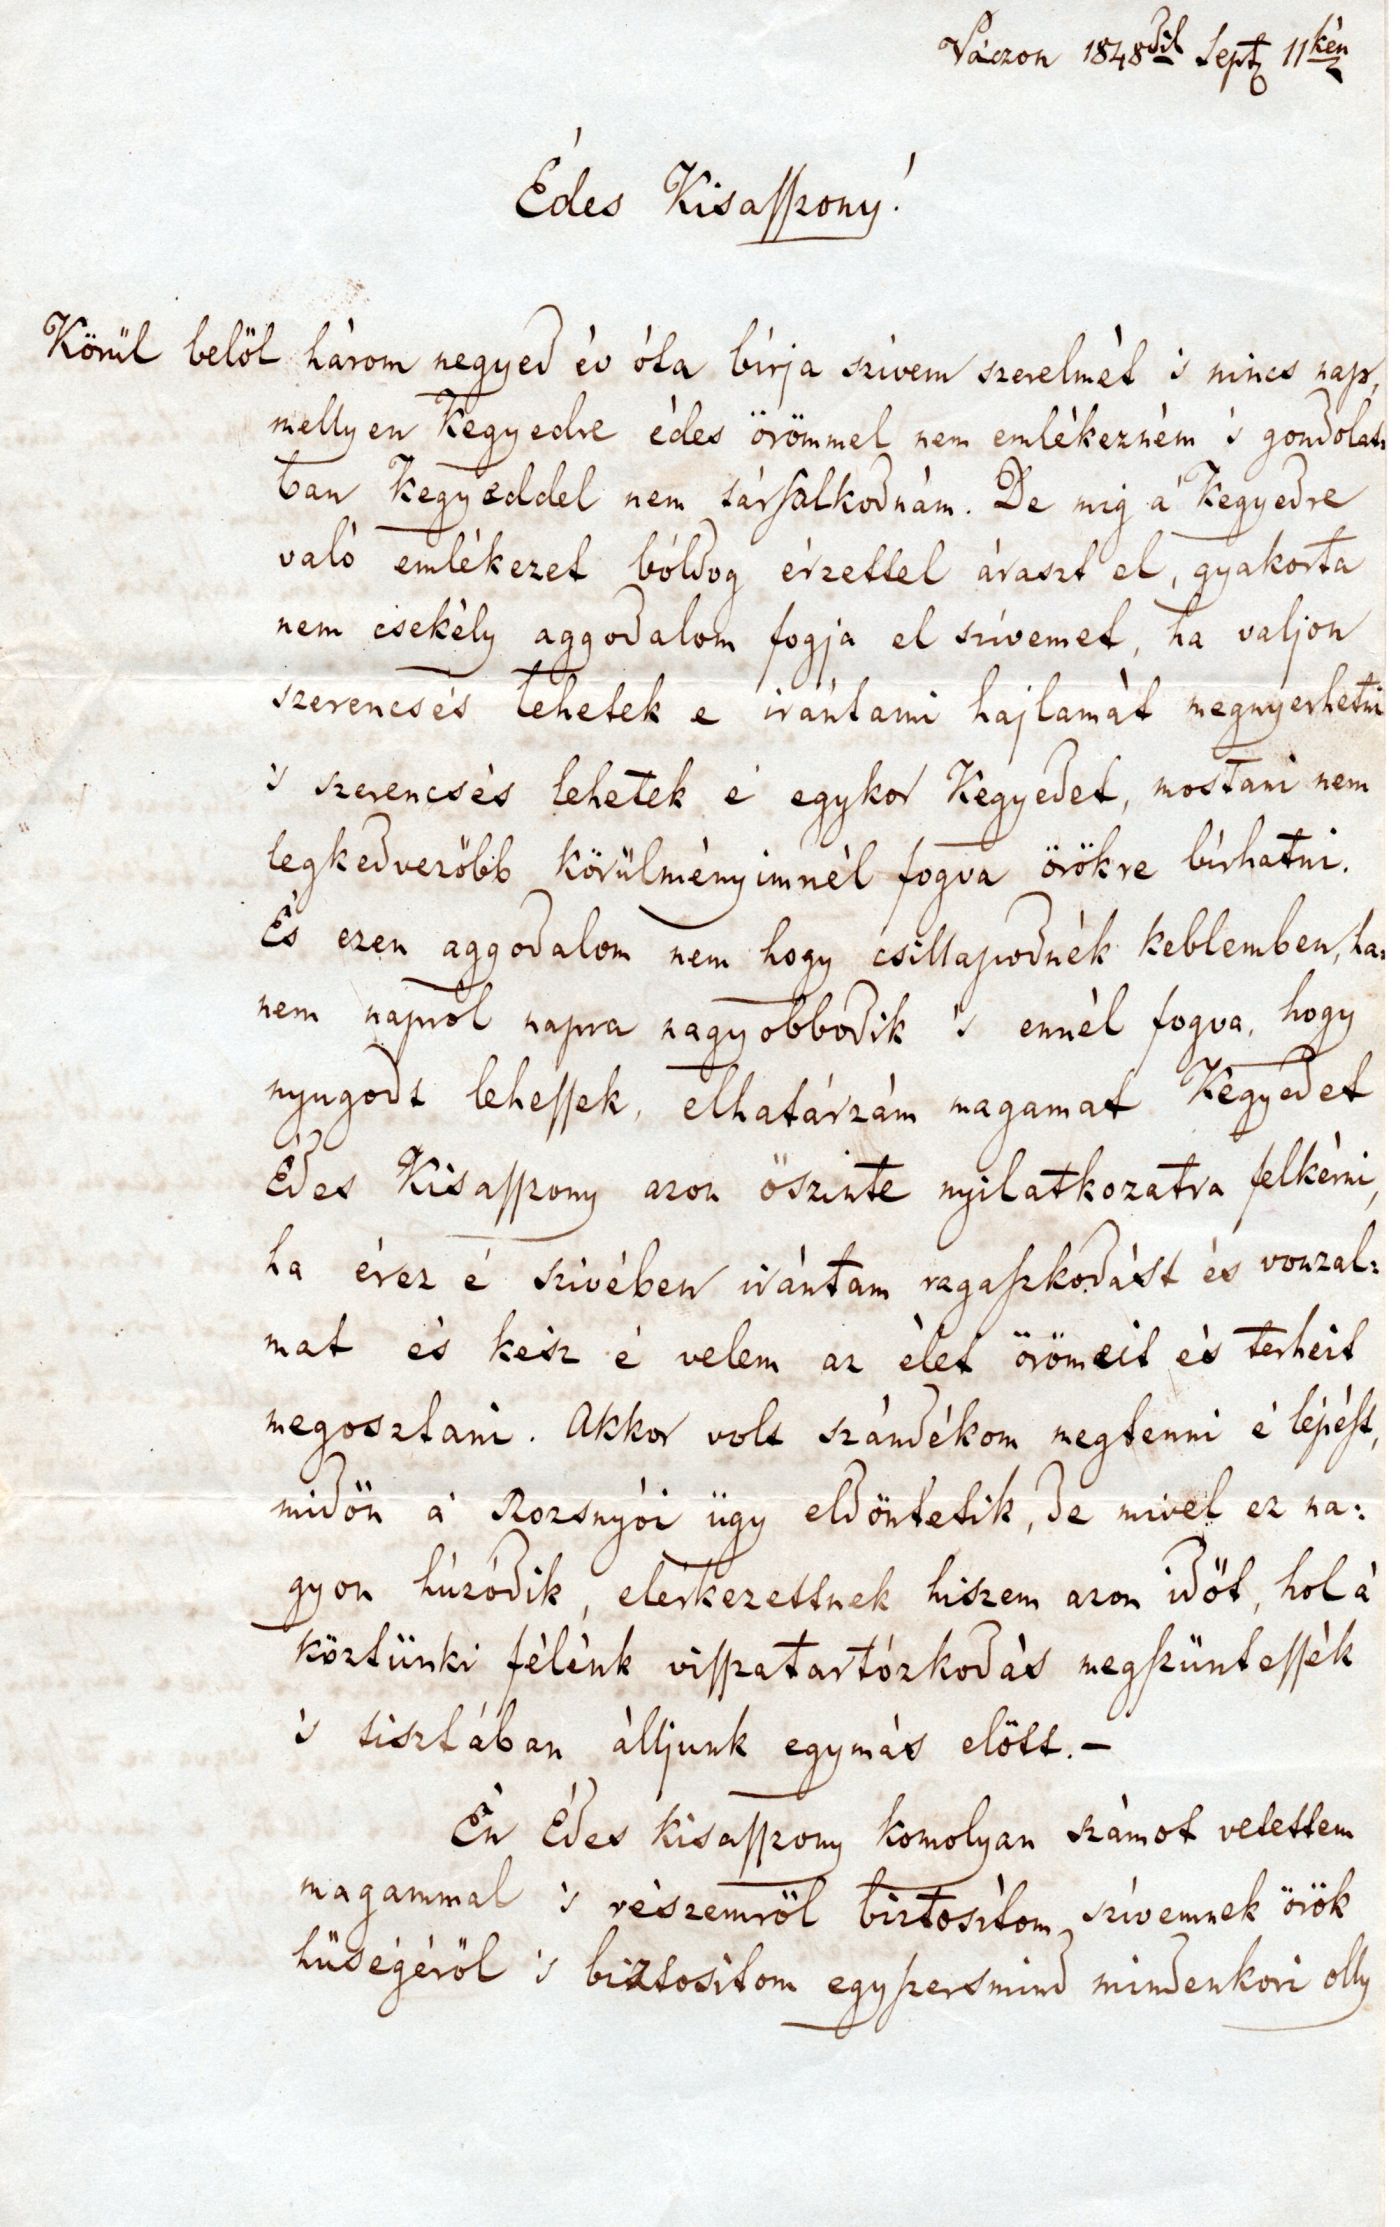 Váczon 1848dik Sept 11kén
Édes Kisasszony!
Körül belöl három negyed év óta bírja szívem szerelmét 's nincs nap,
mellyen Kegyedre édes örömmel nem emlékezném 's gondolat-
ban Kegyeddel nem társalkodnám. De mig a' Kegyedre
való emlékezet bóldog érzettel áraszt el, gyakorta
nem csekély aggodalom fogja el szívemet, ha valjon
szerencsés lehetek e irántami hajlamát megnyerhetni
's szerencsés lehetek é egykor Kegyedet, mostani nem
legkedvezöbb körülményimnél fogva örökre bírhatni.
És ezen aggodalom nem hogy csillapodnék keblemben, ha=
nem napról napra nagyobbodik 's ennél fogva, hogy
nyugodt lehessek, elhatárzám magamat Kegyedet
Édes Kisasszony azon öszinte nyilatkozatra felkérni,
ha érez é szívében irántam ragaszkodást és vonzal=
mat és kész é velem az élet örömeit és terheit
megosztani. Akkor volt szándékom megtenni é lépést,
midön a' Rozsnyói ügy eldöntetik, de mivel ez na=
gyon húzódik, elérkezettnek hiszem azon idöt, hol a'
köztünki félénk visszatartózkodás megszüntessék
's tisztában álljunk egymás elött. –
Én Édes kisasszony komolyan számot vetettem
magammal 's részemröl biztosítom szívemnek örök
hüségéröl 's biztosítom egyszersmind mindenkori olly